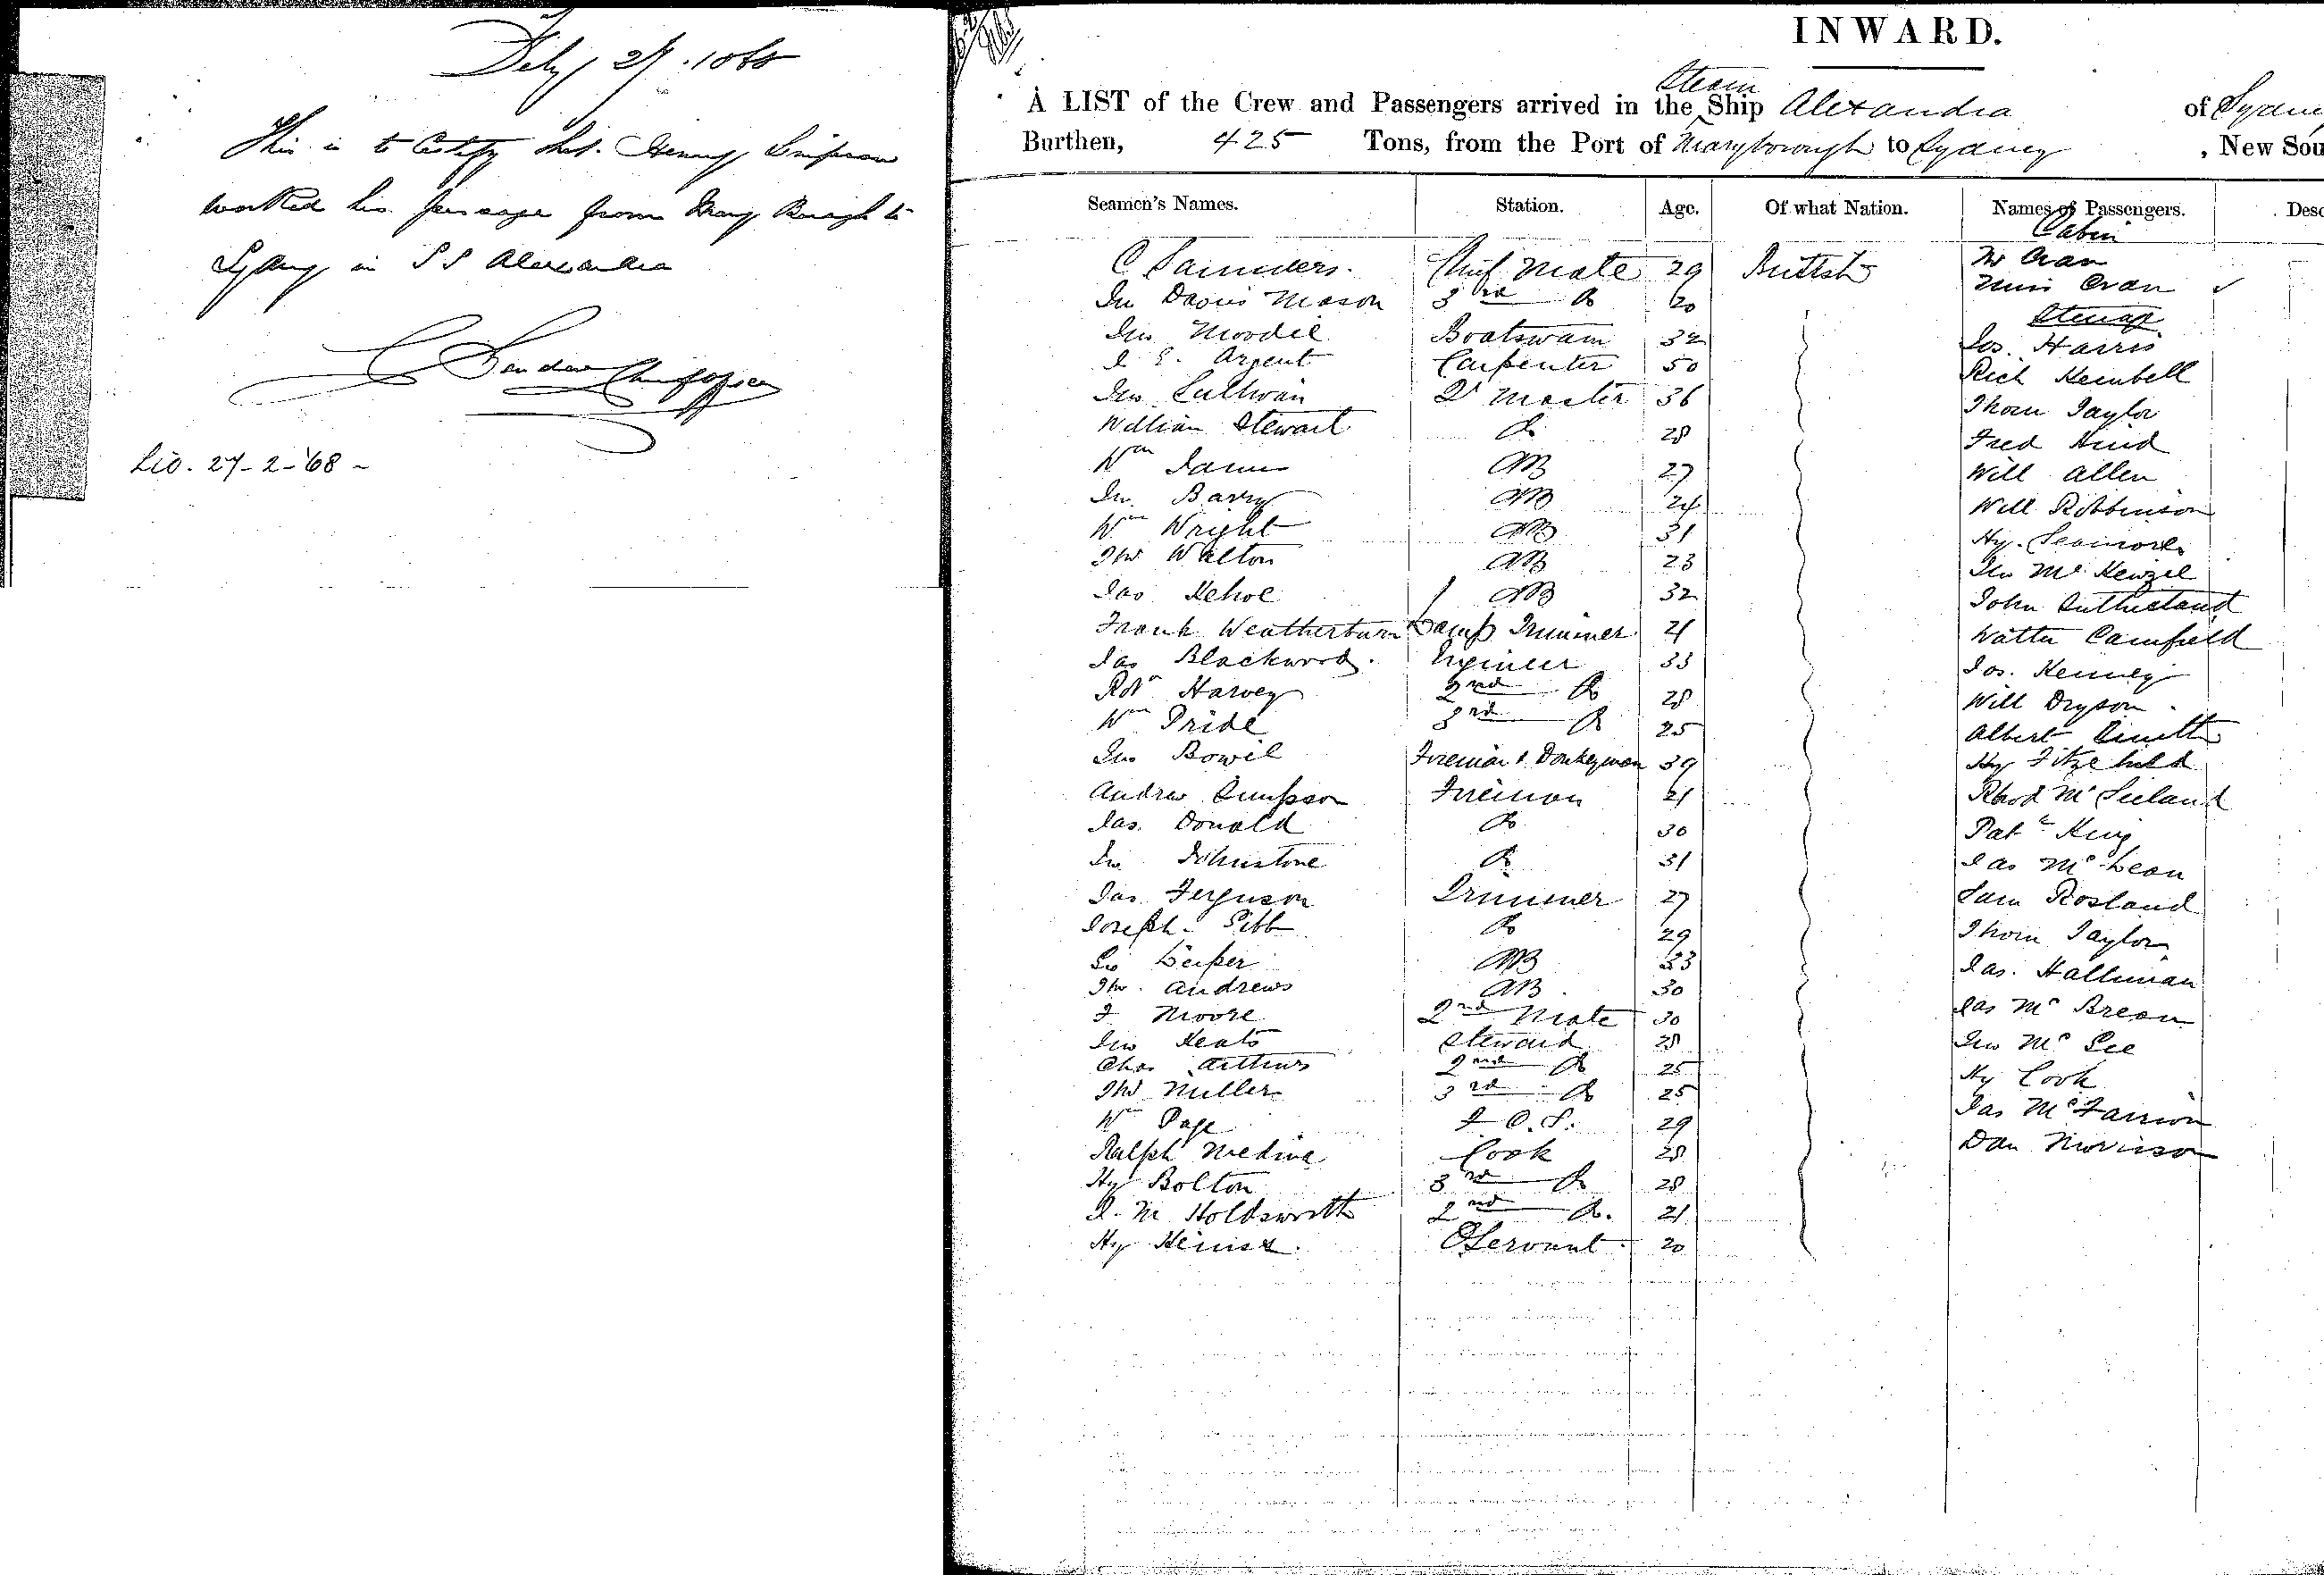 Feby 27. 1868
This is to Certify that Henry Simpson
worked his passage from Mary Borough to
Sydney in S S Alexandra
C Saunders Chief Officer
27-2-'68 -
INWARD.
A LIST of the Crew and Passengers arrived in the Steam Ship Alexandra of Sydney
Burthen, 425 Tons, from the Port of Maryborough to Sydney , New Sou
Seamen's Names. Station. Age. Of what Nation. Names of Passengers. Desc
Cabin
C Saunders. Chief Mate 29 British Mr Cran
Jno Davis Mason 3rd Do 20 Miss Cran
Steerage
Jno Moodie Boatswain 32 Jos. Harris
J E. Argent Carpenter 50 Rich Kembell
Jno Sullivan Qr Master 36 Thom Taylor
William Stewart Do 28 Fred Hind
Wm James AB 27 Will Allen
Jno Barry AB 24 Will Robbinson
Wm Wright AB 31 Hy. Seamore
Thos Walton AB 23 Jno McKenzie
Jas Kehoe AB 32 John Sutherland
Frank Weatherburn Lamp Trimmer 21 Walter Camfield
Jas Blackwood. Engineer 33 Jos. Kenney
Robt Harvey 2nd Do 28 Will Dryson
Wm Pride 3rd Do 25 Albert Smith
Jno Bowie Fireman & Donkeyman 39 Hy
Andrew Simpson Fireman 21
Jas. Donald Do 30 Patk King
Jno Johnstone Do 31 Jas McLean
Jas. Ferguson Trimmer 27 Sam Rosland
Joseph Gibb Do 29 Thom Taylor
AB 33 Jas. Halliman
Thos. Andrews AB 30
Jas McBrean
J Moore 2nd Mate 30
Jno Keats Steward 28 Jno McGee
Chas Arthurs 2nd Do 25 Hy Cook
Thos Miller 3rd Do 25
Wm Page F.C.S. 29 Jas
Ralph Medina Cook 28 Dan Morrison
Hy Bolton 3rd Do 28
J. M Holdsworth 2nd Do. 21
Hy Servant 20